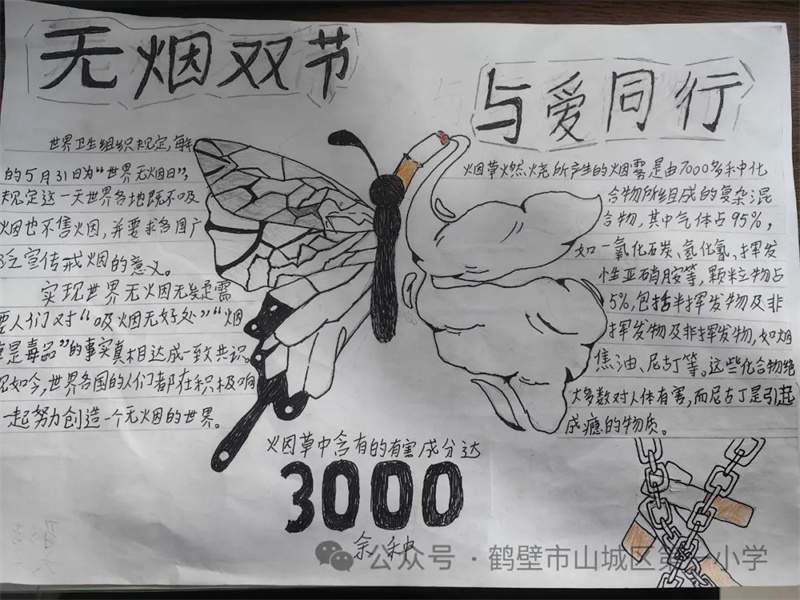 无烟双节
与爱同行
世界卫生组织规定,每
的5月31日为“世界无烟日”,
规定这一天世界各地既不吸
烟也不售烟,并要求各国广
泛宣传戒烟的意义。
实现世界无烟无疑需
要人们对“吸烟无好处”“烟
草是毒品”的事实真相达成一致共识。
如今,世界各国的人们都在积极响
一起努力创造一个无烟的世界。
烟草燃烧所产生的烟雾是由7000多种化
合物所组成的复杂混
合物,其中气体占95%,
如一氧化石炭、氢化氰、挥发
性亚硝胺等,颗粒物占
5%,包括半挥发物及非
挥发物及非挥发物,如烟
焦油、尼古丁等。这些化合物绝
大多数对人体有害,而尼古丁是引起
成瘾的物质。
烟草中含有的有害成分达
3000
余种
公众号·鹤壁市山城区第一小学